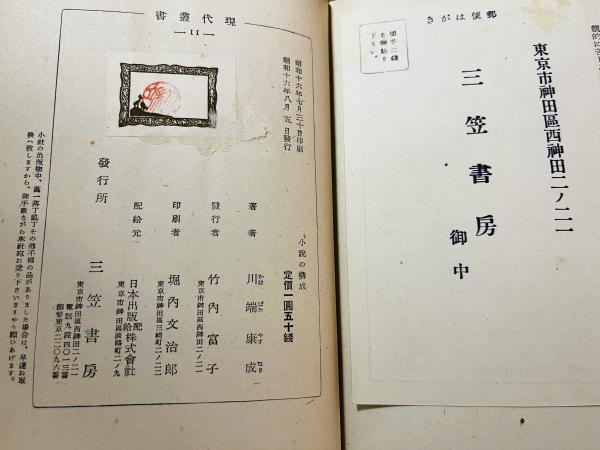 現代叢書
—11—
昭和十六年七月三十日印刷
昭和十六年八月五日發行
小說の構成
定價一圓五十錢
著者 川端康成
かは ばた やす なり
發行者 竹內富子
東京市神田區西神田二ノ二一
印刷者 堀內文治郎
東京市神田區三崎町
配給元 日本出版配給株式會社
東京市神田區淡路町二ノ九
發行所 三笠書房
東京市神田區西神田二ノ二一
電話九段四〇一三番
振替東京二二〇九六番
小社の出版物中、萬一落丁亂丁その他不備の品がありました場合は、早速お取
換へ致しますから、御手數ながら本社宛お送り下さいますやう願ひあげます。
郵便はがき
切手二錢
を御貼り
下さい
東京市神田區西神田二ノ二一
三笠書房
御中